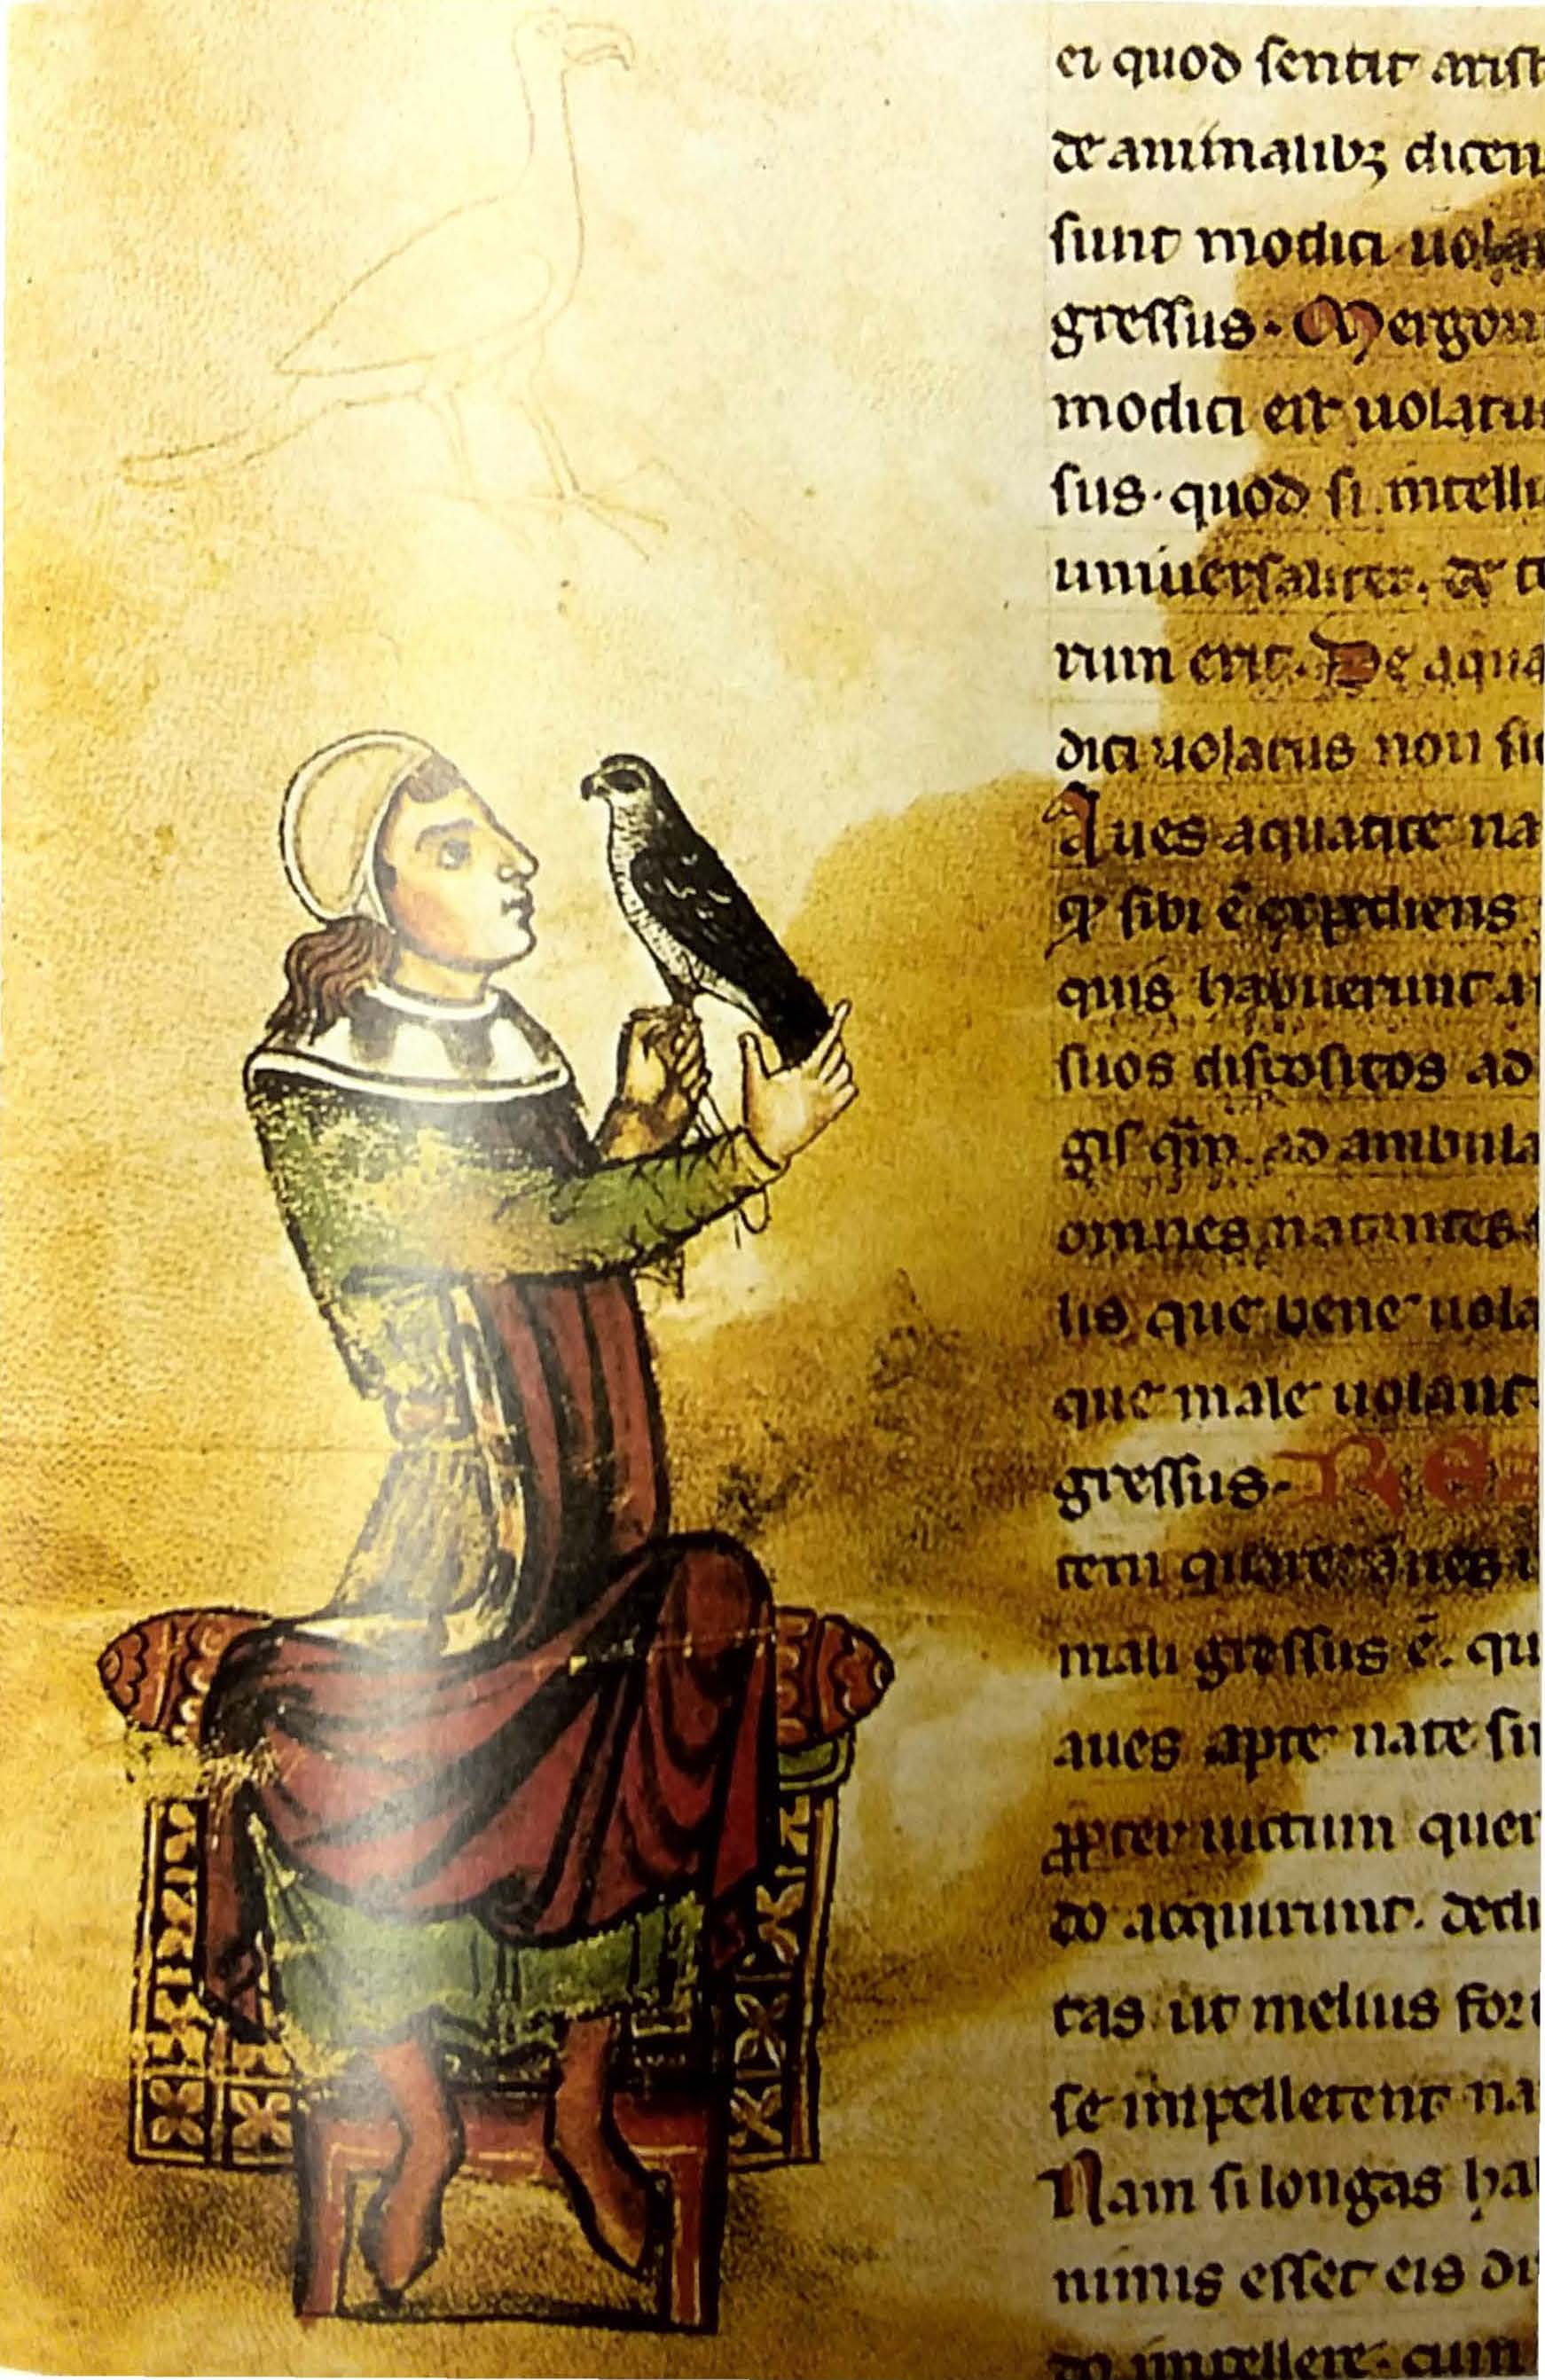 ei quod sentit arist
de animalibꝫ dicen
sunt modici uola
gressus. Mergorum
modici erit uolatus
sus. quod si intelli
uniuersaliter. de
rum erit. De aqua
dici uolatus non sic
Aues aquatice na
ꝙ sibi ē expediens
quis habuerunt a
suos dispositos ad
gis qͣm. ad ambula
omnes natantes
lis que bene uola
que male uolant
gressus. RES
tem quare aues
mali gressus ē. qu
aues apte nate su
ꝓpter uictum quer
do acquirunt. dedi
tas ut melius for
se impellerent na
Nam si longas ha
nimis esset eis di
do impellere. cum